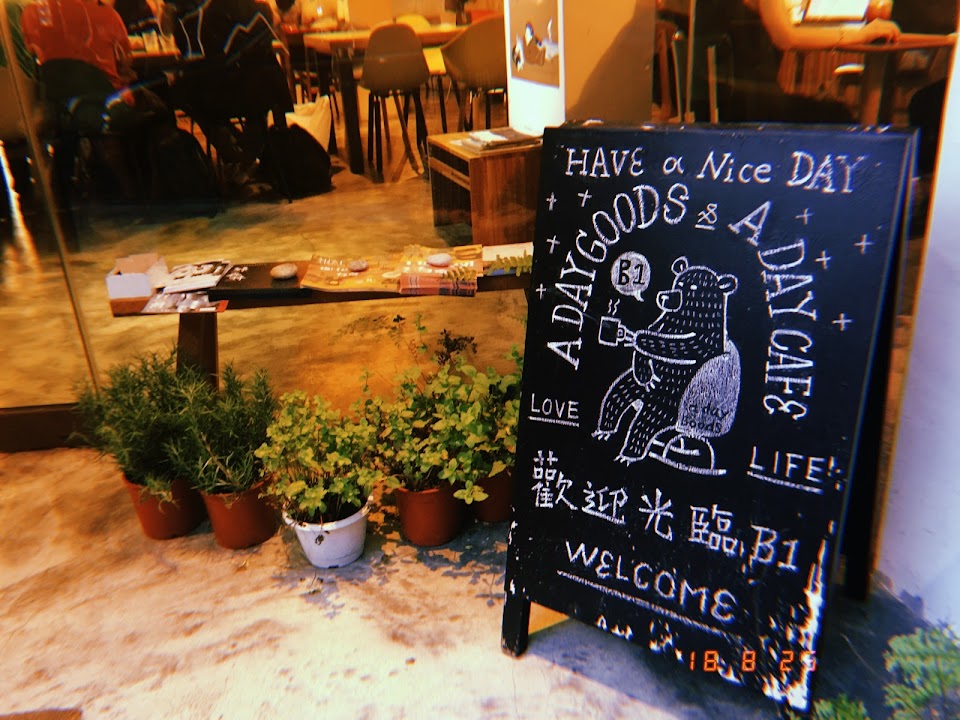 HAVE a Nice DAY
A DAY GOODS & A DAY CAFE
B1
a day
goods
LOVE
LIFE!
歡迎光臨 B1
WELCOME
18 8 25